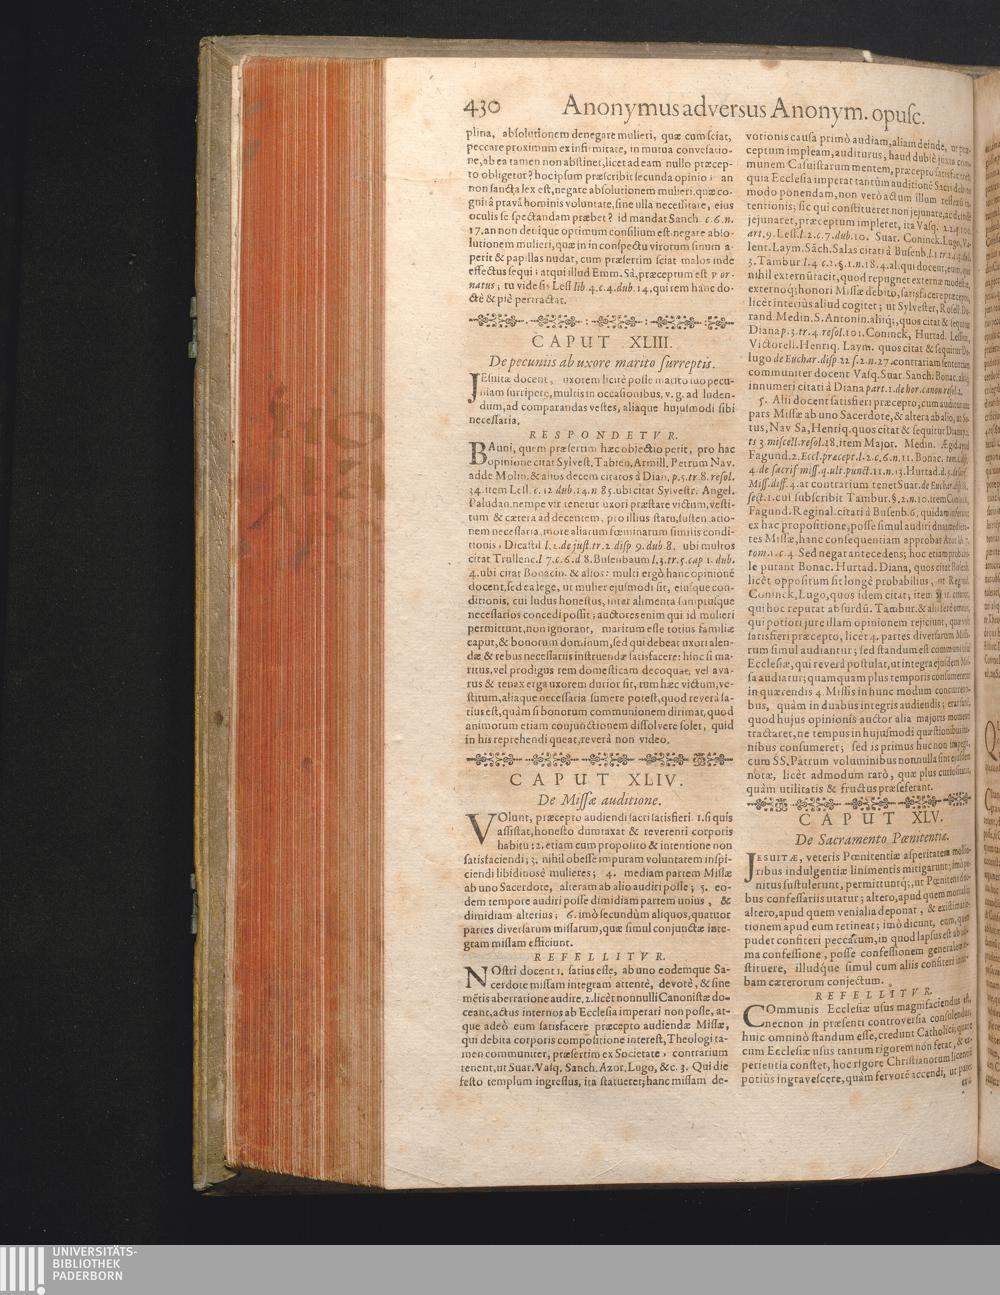 430 Anonymus adversus Anonym. opusc.
plina, absolutionem denegare mulieri, quæ cum sciat,
peccare proximum ex infirmitate, in mutua conversatio-
ne, ab ea tamen non abstinet, licet ad eam nullo præcep-
to obligetur? hoc ipsum præscribit secunda opinio; an
non sancta lex est, negare absolutionem mulieri, quæ co-
gnitâ pravâ hominis voluntate, sine ulla necessitate, eius
oculis se spectandam præbet? id mandat Sanch. c 6. n.
17. an non denique optimum consilium est negare abso-
lutionem mulieri, quæ in in conspectu virorum sinum a-
perit & papillas nudat, cum præsertim sciat malos inde
effectus sequi: atqui illud Emm. Sà, præceptum est v or-
natus; tu vide sis Less lib 4. c. 4. dub. 14. qui rem hanc do-
ctè & piè pertractat.
CAPUT XLIII.
De pecuniis ab uxore marito surreptis.
JEsuitæ docent, uxorem licitè posse marito suo pecu-
niam surripere, multis in occasionibus, v. g. ad luden-
dum, ad comparandas vestes, aliaque hujusmodi sibi
necessaria.
RESPONDETVR.
BAuni, quem præsertim hæc obiectio petit, pro hac
opinione citat Sylvest. Tabien. Armill. Petrum Nav.
adde Molin. & alios decem citatos à Dian. p. 5. tr 8. resol.
34. item Lessl c. 12 dub. 14. n 85. ubi citat Sylvestr. Angel.
Paludan. nempe vir tenetur uxori præstare victum, vesti-
tum & cætera ad decentem, pro illius statu, sustentatio-
nem necessaria, more aliarum fœminarum similis condi-
tionis; Dicastil l. 2. de just. tr. 2 disp 9. dub. 8. ubi multos
citat Trullenc. l 7. c. 6. d 8. Busenbaum l. 3. tr. 5. cap 1. dub.
4. ubi citat Bonacin. & alios: multi ergò hanc opinionē
docent, sed ea lege, ut mulier ejusmodi sit, eiusque con-
ditionis, cui ludus honestus, inter alimenta sumptusque
necessarios concedi possit; auctores enim qui id mulieri
permittunt, non ignorant, maritum esse totius familiæ
caput, & bonorum dominum, sed qui debeat uxori alen-
dæ, & rebus necessariis instruendæ satisfacere: hinc si ma-
ritus, vel prodigus rem domesticam decoquat, vel ava-
rus & tenax erga uxorem durior sit, tum hæc victum, ve-
stitum, aliaque necessaria sumere potest, quod reverà sa-
tius est, quàm si bonorum communionem dirimat, quod
animorum etiam conjunctionem dissolvere solet, quid
in his reprehendi queat, reverà non video.
CAPUT XLIV.
De Missæ auditione.
VOlunt, præcepto audiendi sacri satisfieri 1. si quis
assistat, honesto dumtaxat & reverenti corporis
habitu: 2. etiam cum proposito & intentione non
satisfaciendi; 3. nihil obesse impuram voluntatem inspi-
ciendi libidinosè mulieres; 4. mediam partem Missæ
ab uno Sacerdote, alteram ab alio audiri posse; 5. eo-
dem tempore audiri posse dimidiam partem unius, &
dimidiam alterius; 6. imò secundùm aliquos, quatuor
partes diversarum missarum, quæ simul conjunctæ inte-
gram missam efficiunt.
REFELLITVR.
NOstri docent 1. satius esse, ab uno eodemque Sa-
cerdote missam integram attentè, devotè, & sine
mētis aberratione audire. 2. licèt nonnulli Canonistæ do-
ceant, actus internos ab Ecclesia imperari non posse, at-
que adeò eum satisfacere præcepto audiendæ Missæ,
qui debita corporis compositione interest, Theologi ta-
men communiter, præsertim ex Societate, contrarium
tenent, ut Suar. Vasq. Sanch. Azor. Lugo, &c. 3. Qui die
festo templum ingressus, ita statueret; hanc missam de-
votionis causa primò audiam, aliam deinde, ut præ-
ceptum impleam, auditurus, haud dubiè juxta com-
munem Casuistarum mentem, præcepto satisfaceret
quia Ecclesia imperat tantùm auditionē Sacri debito
modo ponendam, non verò actum illum
tentionis; sic qui constitueret non jejunare, ac deinde
jejunaret, præceptum impleret, ita Vasq.
art. 9. Lessl. l. 2. c. 7. dub. 10. Suar. Coninck. Lugo, Va-
lent. Laym. Sāch. Salas citati à Busenb.
3. Tambur l. 4 c. 2. §. 1. n. 18. 4. aliqui docent, eum, qui
nihil externū facit, quod repugnet externæ modestiæ,
externoq; honori Missæ debito, satisfacere præcepto,
licèt interiùs aliud cogitet; ut Sylvester, Rosell. Du-
rand Medin. S. Antonin. aliiq;, quos citat & sequitur
Diana p. 3. tr. 4 resol. 101. Coninck, Hurtad. Lessius,
Victorell. Henriq. Laym. quos citat & sequitur De-
lugo de Euchar. disp. 22 s. 2. n. 27. contrariam sententiam
communiter docent Vasq. Suar. Sanch. Bonac. aliiq;
innumeri citati à Diana part. 1. de hor. canon resol. 2.
5. Alii docent satisfieri præcepto, cum auditur una
pars Missæ ab uno Sacerdote, & altera ab alio, ut So-
tus, Nav Sa, Henriq. quos citat & sequitur Diana p. 2.
ts 3. miscell. resol. 48. item Major. Medin. Ægid. apud
Fagund. 2. Eccl. præcept. l. 2. c. 6. n. 11. Bonac.
4. de sacrif miss. q. ult. punct. 11. n. 13. Hurtad.
Miss. diff. 4. at contrarium tenet Suar. de Euchar.
sect. 1. cui subscribit Tambur. §. 2. n. 10. item Coninck,
Fagund. Reginal. citati à Busenb. 6. quidam inferunt
ex hac propositione, posse simul audiri duas medien-
tes Missæ, hanc consequentiam approbat Azor lib. 7.
tom. 1. c. 4 Sed negat antecedens; hoc etiam probabi-
le putant Bonac. Hurtad. Diana, quos citat Busenb.
licèt oppositum sit longè probabilius, ut Reginal.
Coninck, Lugo, quos idem citat; item
qui hoc reputat absurdū. Tambur. & alii ferè omnes,
qui potiori jure illam opinionem rejiciunt, quæ vult
satisfieri præcepto, licèt 4. partes diversarum Missa-
rum simul audiantur; sed standum est communi usui
Ecclesiæ, qui reverà postulat, ut integra ejusdem Mis-
sa audiatur; quamquam plus temporis consumeretur
in quærendis 4. Missis in hunc modum concurren-
bus, quàm in duabus integris audiendis; erat sanè,
quod hujus opinionis auctor alia majoris momenti
tractaret, ne tempus in hujusmodi quæstionibus
nibus consumeret; sed is primus huc non impegit,
cum SS. Patrum voluminibus nonnulla sint ejusdem
notæ, licèt admodum rarò, quæ plus curiositatis,
quàm utilitatis & fructus præseferant.
CAPUT XLV.
De Sacramento Pœnitentiæ.
JESUITÆ, veteris Pœnitentiæ asperitatem mollio-
ribus indulgentiæ linimentis mitigarunt; imò pe-
nitus sustulerunt, permittuntq;, ut Pœnitens duo-
bus confessariis utatur; altero, apud quem mortalia,
altero, apud quem venialia deponat, & existima-
tionem apud eum retineat; imò dicunt, eum, quem
pudet confiteri peccatum, in quod lapsus est ab ulti-
ma confessione, posse confessionem generalem in-
stituere, illudque simul cum aliis confiteri
bam cæterorum conjectum.
REFELLITVR.
COmmunis Ecclesiæ usus magnifaciendus est,
necnon in præsenti controversia consulendus,
huic omninò standum esse, credunt Catholici; quare
cum Ecclesiæ usus tantum rigorem non ferat, & ex-
perientia constet, hoc rigore Christianorum licentiā
potiùs ingravescere, quàm fervorē accendi, ut patet
UNIVERSITÄTS-
BIBLIOTHEK
PADERBORN